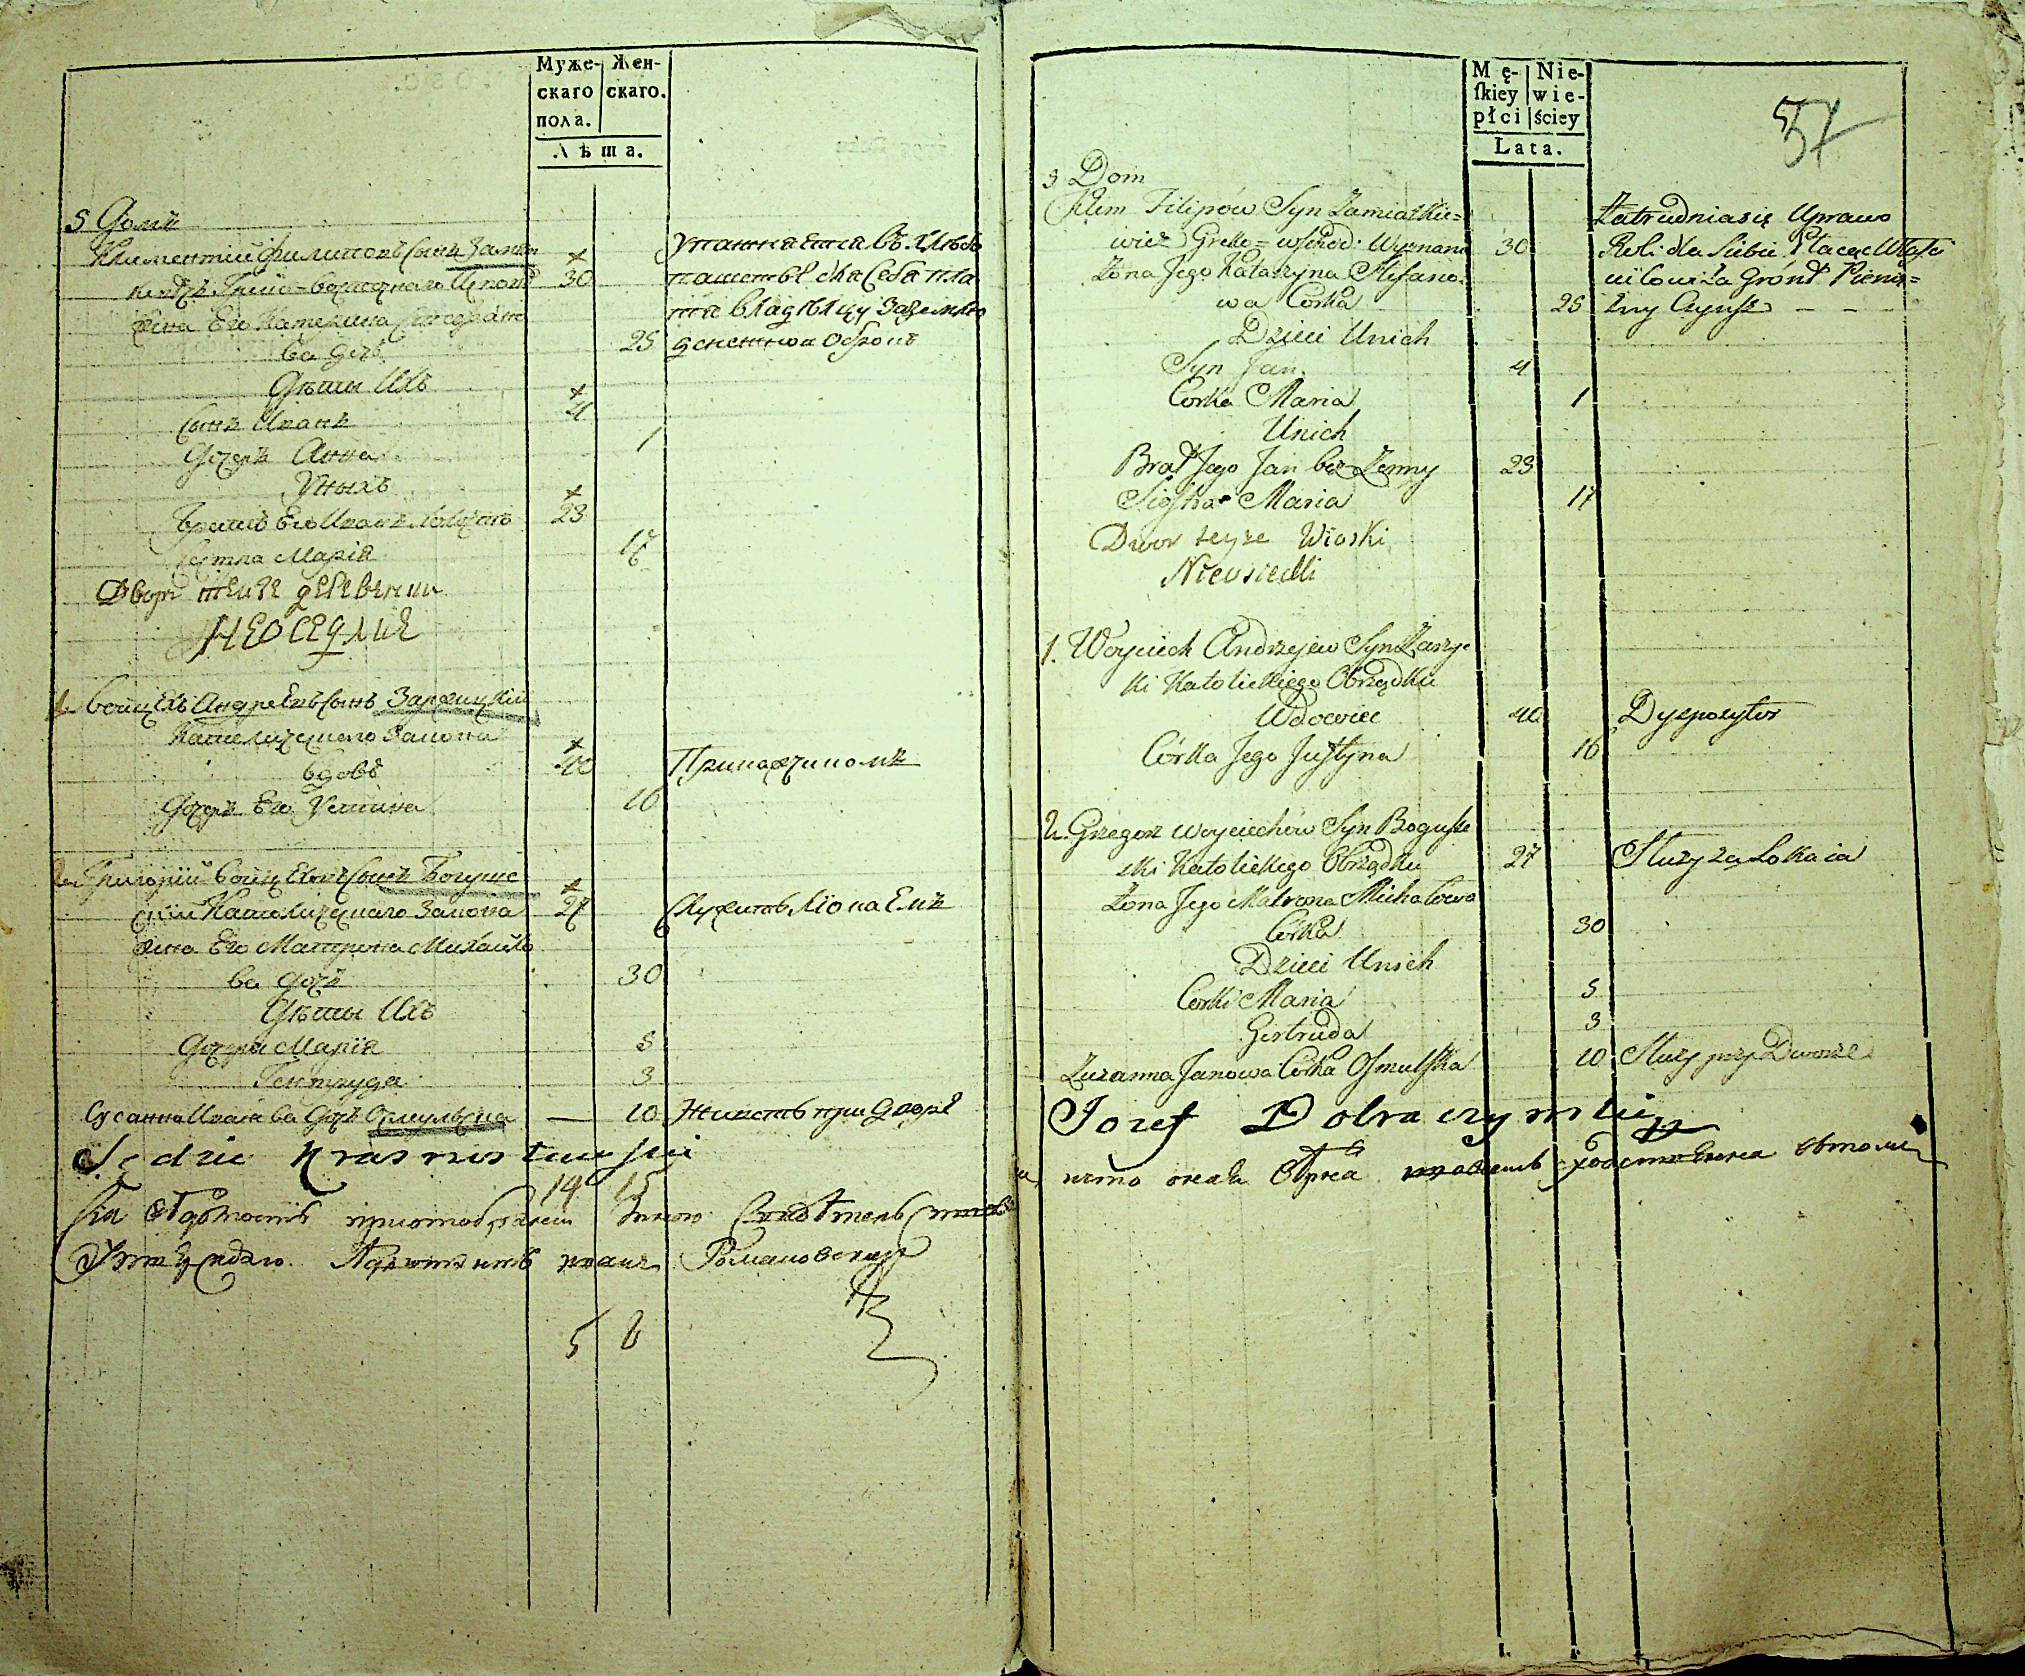 Муже-
скаго
пола.
Жен-
скаго.
Лѣта.
5 Домъ
Климентій Филиповъ сынъ Замят
кевичъ Греко-восточнаго Испов
30
Жена Его Катерина Стефано
ва дочь
25
Упражняется въ хлѣбо
пашествѣ для себя пла
тя владѣльцу за землю
денежный оброкъ
Дѣти Ихъ
Сынъ Иванъ
4
Дочерь Анна
1
У них
Братъ Его Иванъ
23
Сестра Марія
17
Дворъ теиже деревени
неоседлие
1. Войцехъ Андреевъ сынъ
Католическаго Закона
вдовъ
40
Дочерь Его Устина
16
2. Григорій Войцеховъ сынъ Богуше
скій Католическаго Закона
27
Служитъ лiокаемъ
Жена Его Матрона Михайло
ва дочь
30
Дѣти Ихъ
Дочери Марія
5
Гертруда
3
Сусанна Иванова дочь Осмульска
— 10
при дворѣ
Sędzic Krasnostawski
14 15
5 8
57
Mę-
skiey
płci
Nie-
wie-
ściey
Lata.
5 Dom
Klim Filipów Syn Zamiatkie=
wicz Greko=wschod: Wyznania
30
Zona Jego Katarzyna Stefano=
wa Corka
25
Zatrudnia się Uprawą
Roli dla Siebie Płacąc Właści
cielowi za Grónt Pienię=
żny Czynsz — — —
Dzieci Unich
Syn Jan
4
Corka Maria
1
Unich
Brat Jego Jan bez Zenny
23
Siostra Maria
17
Dwor teyze Wioski
Nieosiedli
1. Woyciech Andrzejew Syn Zarzyc
ki Katolickiego Obrządku
Wdowiec
40
Dyspozytor
Córka Jego Justyna
16
2. Grzegorz Woyciechów Syn Bogusze
ski Katolickiego Obrządku
27
Służy za Lokaia
Żona Jego Matrona Michałowa
Córka
30
Dzieci Unich
Corki Maria
5
Gertruda
3
Zuzanna Janowa Córka Osmulska
10
Służy przy Dworze
Iozef Dobraczynski